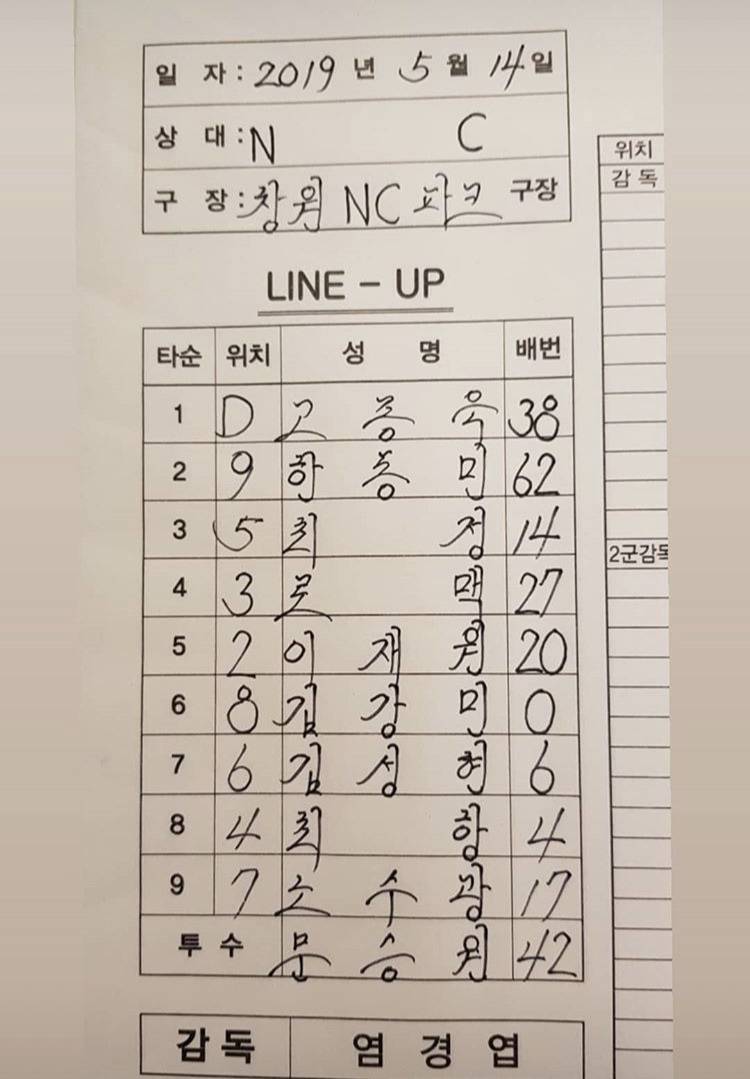 일 자 : 2019 년 5 월 14 일
상 대 : N C
구 장 : 창원 NC 파크 구장
LINE - UP
타순 위치 성 명 배번
1 D 고 종 욱 38
2 9 한 동 민 62
3 5 최 정 14
4 3 로 맥 27
5 2 이 재 원 20
6 8 김 강 민 0
7 6 김 성 현 6
8 4 최 항 4
9 7 노 수 광 17
투 수 문 승 원 42
감 독 염 경 엽
위치
감 독
2군감독